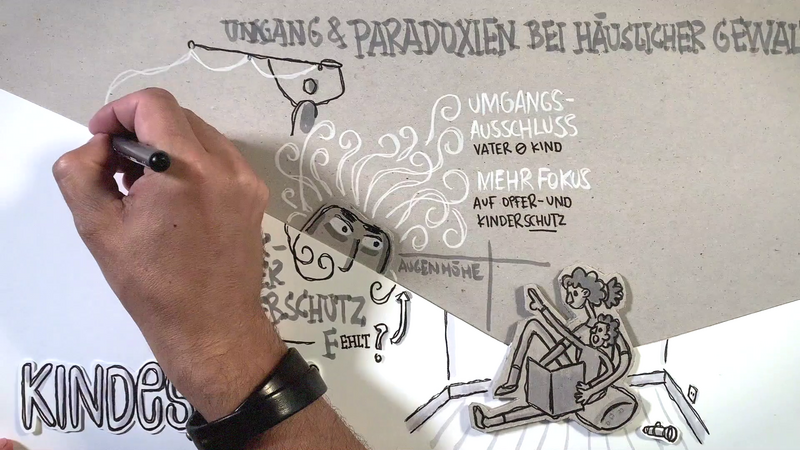 UMGANG & PARADOXIEN BEI HÄUSLICHER GEWAL
UMGANGS-
AUSSCHLUSS
VATER Ø KIND
MEHR FOKUS
AUF OPFER- UND
KINDERSCHUTZ
AUGENHÖHE
BSCHUTZ
FEHLT?
KINDES